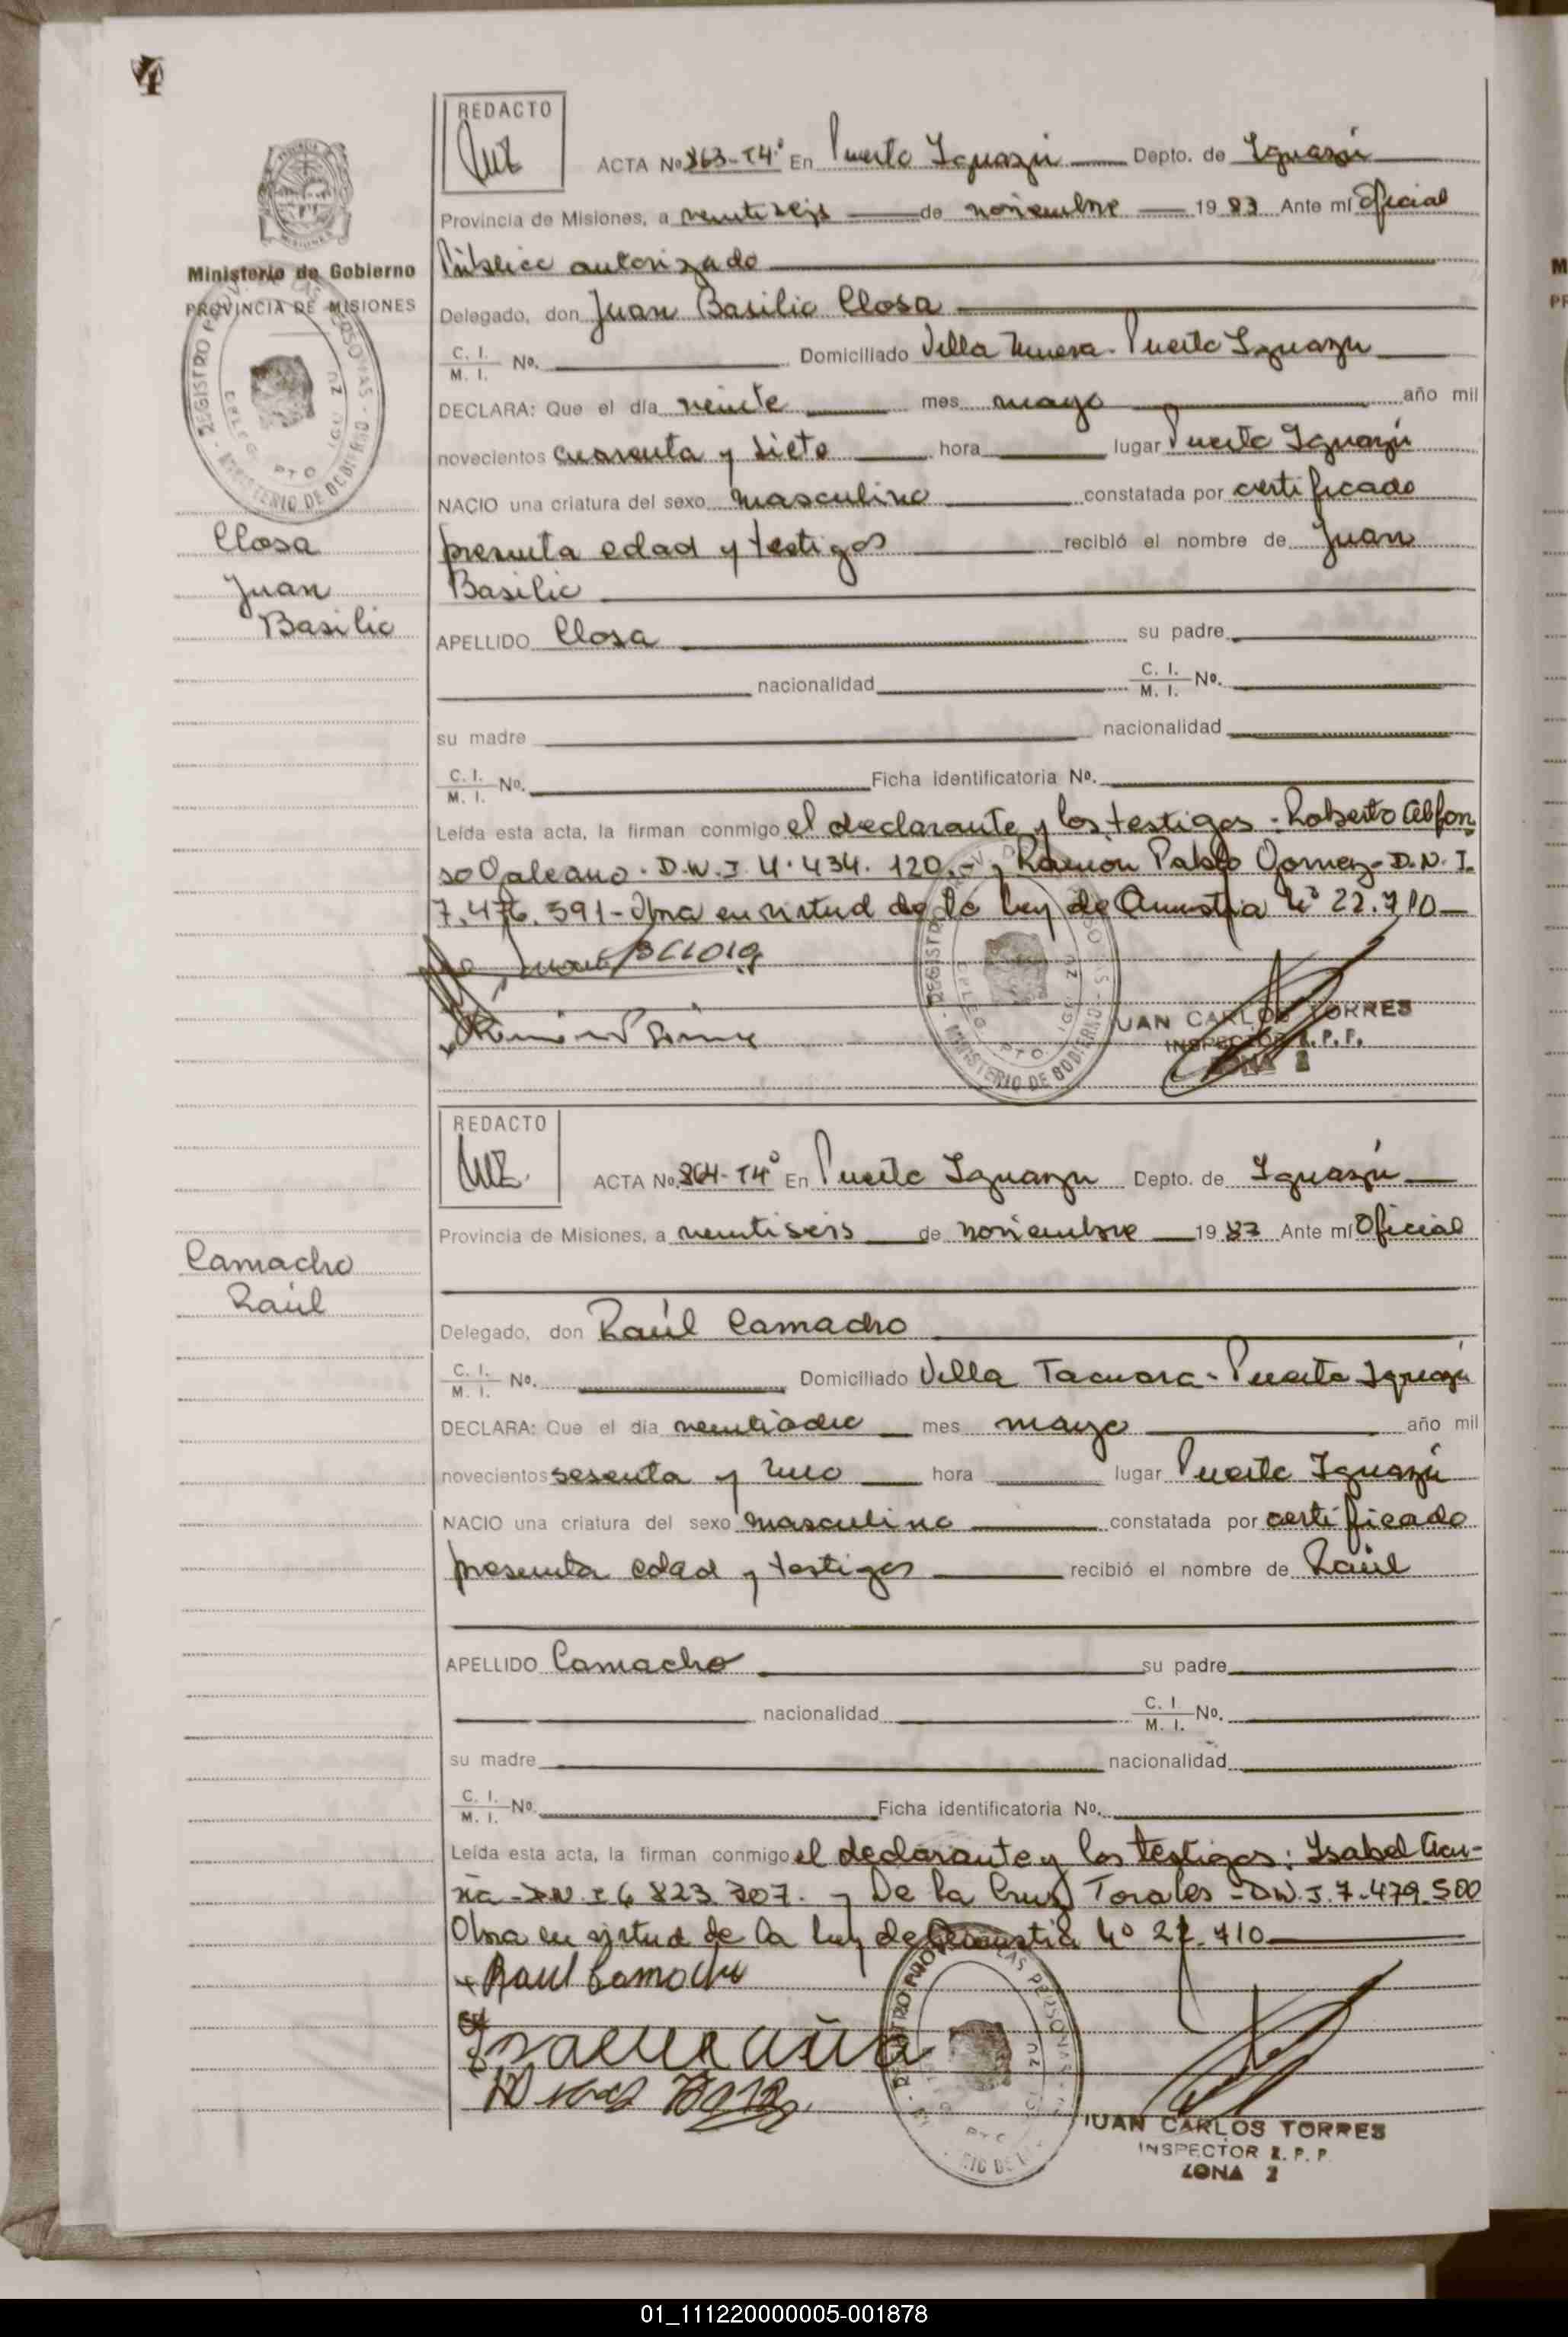 4
REDACTO
ACTA No. 863-T4º En Puerto Iguazú Depto. de Iguazú
Provincia de Misiones, a veintiseis de noviembre 1983 Ante mí Oficial
Público autorizado
Ministerio de Gobierno
PROVINCIA DE MISIONES
Delegado, don Juan Basilio Closa
C. I.
M. I. No. Domiciliado Villa Nueva - Puerto Iguazu
DECLARA: Que el día veinte mes mayo año mil
novecientos cuarenta y siete hora lugar Puerto Iguazú
NACIO una criatura del sexo masculino constatada por certificado
Closa
presunta edad y testigos recibió el nombre de Juan
Juan
Basilio
Basilio
APELLIDO Closa su padre
nacionalidad C. I.
M. I. No.
su madre nacionalidad
C. I.
M. I. No. Ficha identificatoria No.
Leída esta acta, la firman conmigo el declarante y los testigos: Roberto Alfon
so Galeano. D.N.I. 4.434.120.- y Ramón Pablo Gomez- D.N.I.
7.476.391- Obra en virtud de la ley de Amnistia Nº 22.710
JUAN CARLOS TORRES
INSPECTOR R. P. P.
ZONA 2
REDACTO
ACTA No. 864-T4º En Puerto Iguazu Depto. de Iguazú
Provincia de Misiones, a veintiseis de noviembre 1983 Ante mí Oficial
Camacho
Raúl
Delegado, don Raúl Camacho
C. I.
M. I. No. Domiciliado Villa Tacuara - Puerto Iguazú
DECLARA: Que el día veintiocho mes mayo año mil
novecientos sesenta y uno hora lugar Puerto Iguazú
NACIO una criatura del sexo masculino constatada por certificado
presunta edad y testigos recibió el nombre de Raúl
APELLIDO Camacho su padre
nacionalidad C. I.
M. I. No.
su madre nacionalidad
C. I.
M. I. No. Ficha identificatoria No.
Leída esta acta, la firman conmigo el declarante y los testigos: Isabel Acu-
ña - D.N.I 6 823 707. y De la Cruz Torales - D.N.I. 7.479.500
Obra en virtud de la ley de Amnistia Nº 22.710
Raul Camacho
JUAN CARLOS TORRES
INSPECTOR R. P. P.
ZONA 2
01_111220000005-001878